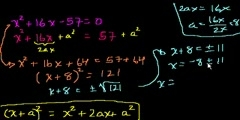 x² + 16x - 57 = 0
x² + 16x + a² = 57 + a²
2ax
x² + 16x + 64 = 57 + 64
(x + 8)² = 121
x + 8 = ± √121
(x + a)² = x² + 2ax + a²
2ax = 16x
a = 16x / 2x = 8
x + 8 = ± 11
x = -8 ± 11
x =